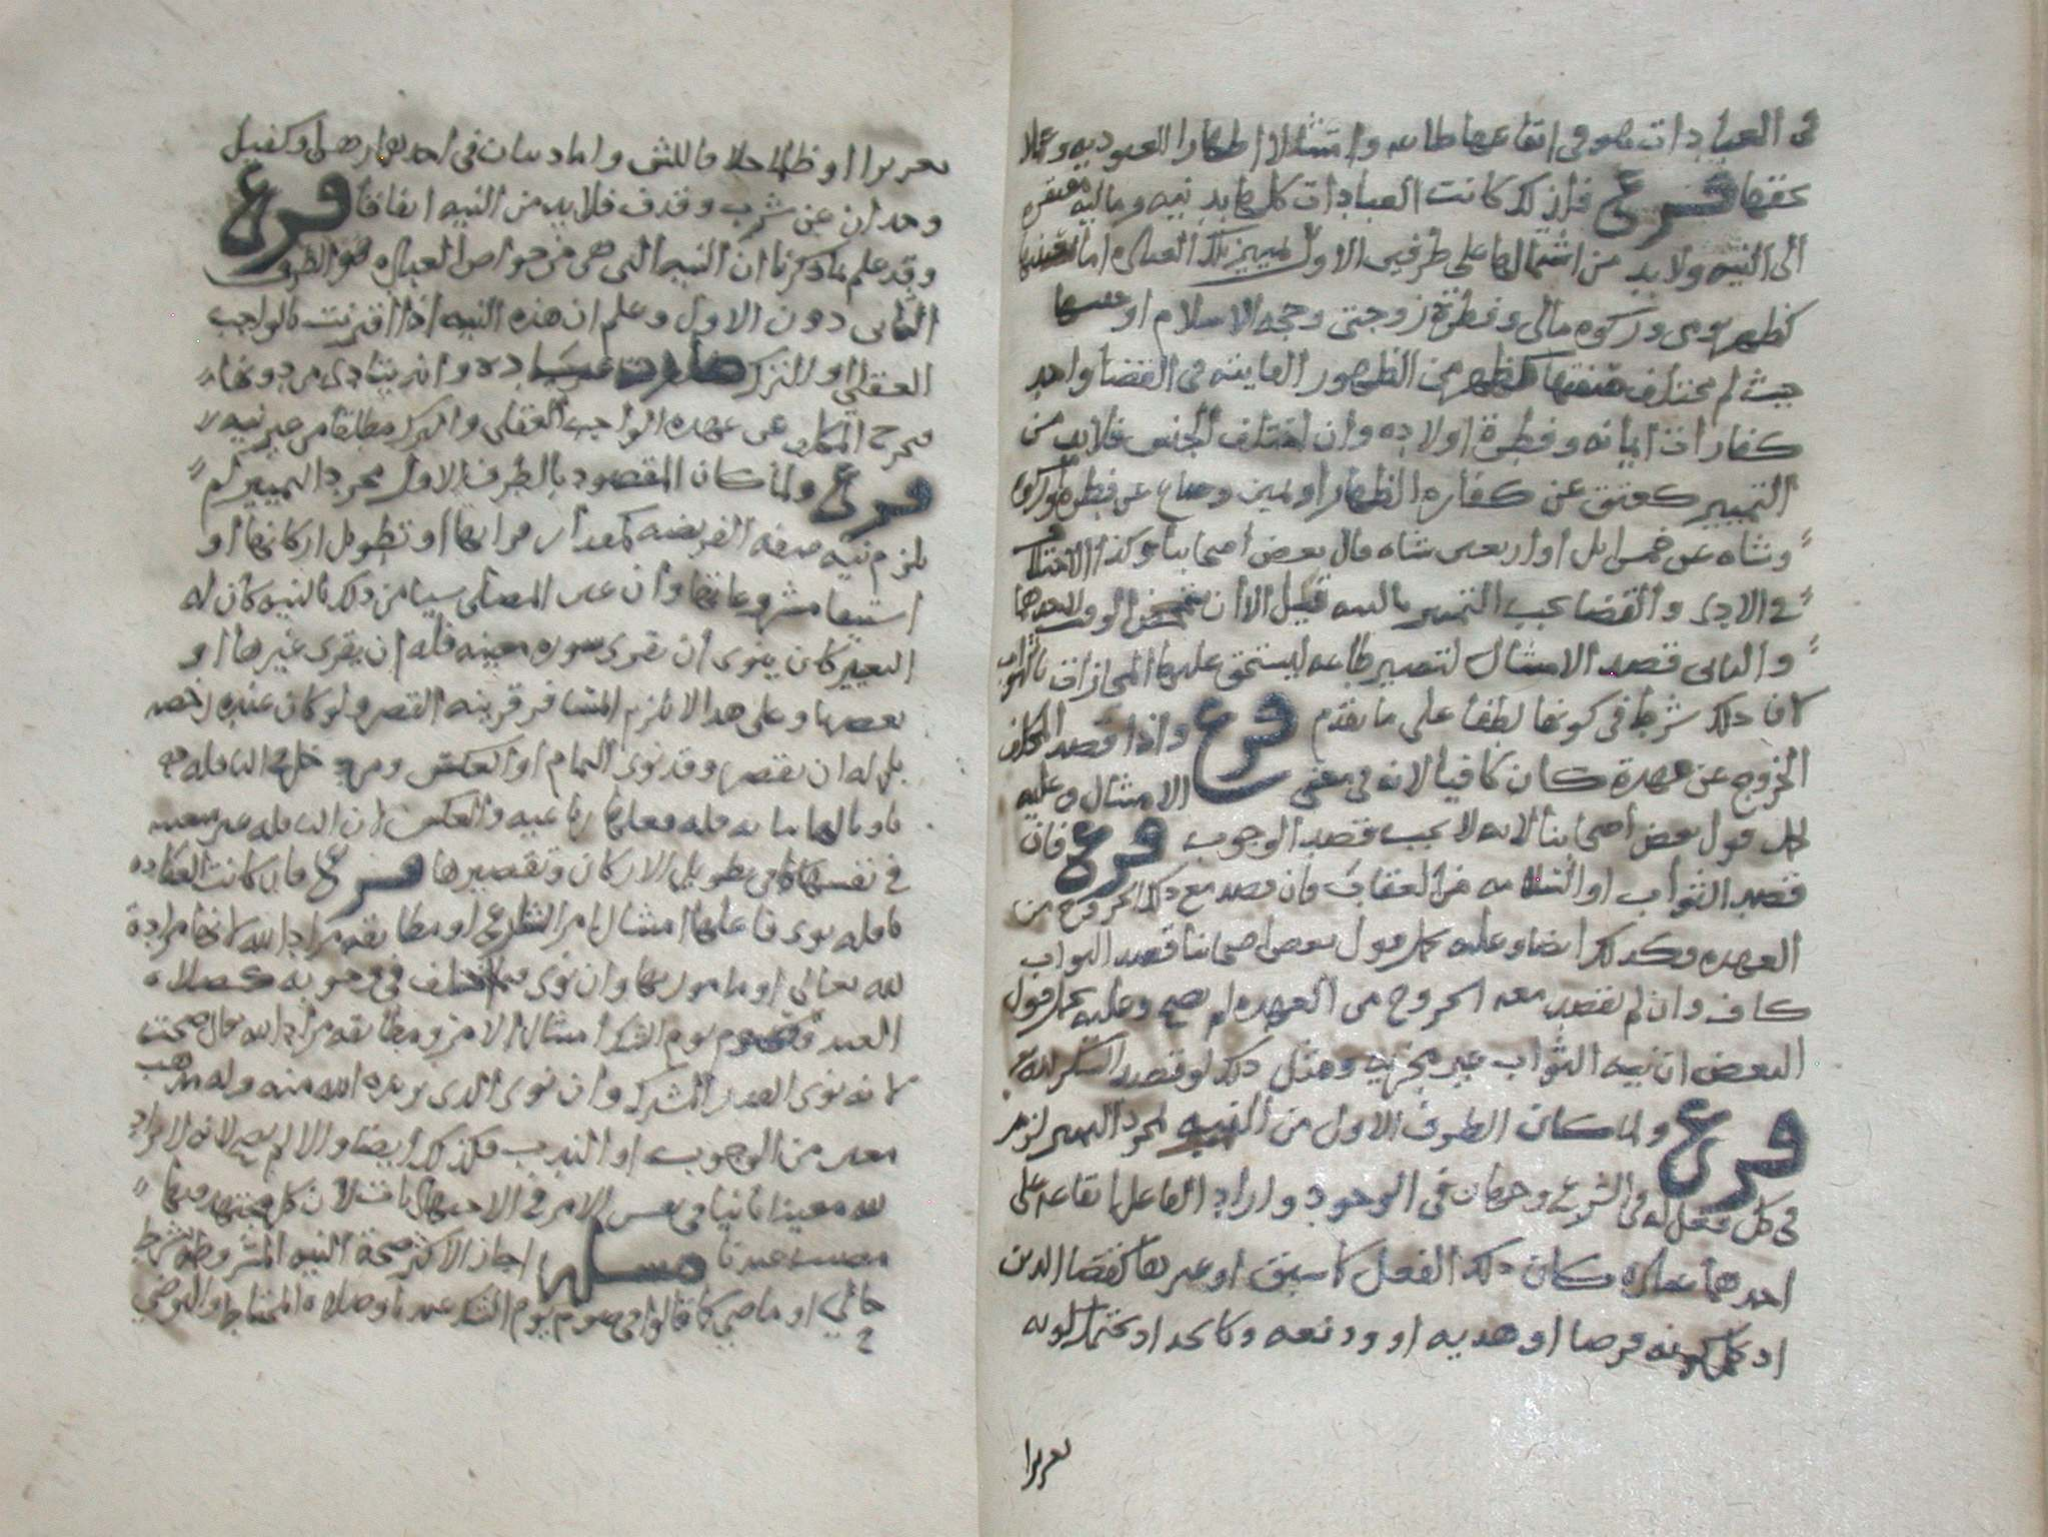 في العبادات هو في ايقاعها طاعه وامتثالا اظهارا للعبوديه وعملا
بحقها فرع فلذلك كانت العبادات كلها بدنيه وماليه مفتقره
الى النيه ولا بد من اشتمالها على طرفين الاول تمييز تلك العباده اما
كظهر يومي وزكوه مالي وفطرة زوجتي وحجه الاسلام او
حيث لم يختلف كظهر من الظهور الفايته في القضا واحد
كفارات ايمانه وفطرة اولاده وان اختلف الجنس فلا بد من
التمييز كعتق عن كفاره الظهار او يمين وصاع عن فطره او زكوة
وشاه عن خمس ابل او اربعين شاه قال بعض اصحابنا وكذا
في الادى والقضا يجب التمييز بالنيه قيل الا ان الوقت لاحدهما
والثاني قصد الامتثال لتصير طاعه ليستحق عليها المجازاة بالثواب
لان ذلك شرط في كونها لطفا على ما تقدم فرع واذا قصد المكلف
الخروج عن عهدة كان كافيا لانه في معنى الامتثال وعليه
يحمل قول بعض اصحابنا لانه لا يجب قصد الوجوب فرع فان
قصد الثواب او السلامه من العقاب فان قصد مع ذلك الخروج من
العهده فكذلك ايضا وعليه يحمل قول بعض اصحابنا قصد الثواب
كاف وان لم يقصد معه الخروج من العهده لم يصح وعليه يحمل قول
البعض ان نيه الثواب غير مجزيه ومثل ذلك لو قصد الشكر لله
فرع ولما كان الطرف الاول من النيه لمجرد التمييز لزم
في كل فعل له في الشرع وجهان في الوجود واراد الفاعل ايقاعه على
احدهما عباده كان ذلك الفعل كما سبق او غيرها كقضا الدين
اذ يحتمل كونه قرضا او هديه او وديعه وكالحد اذ يحتمل كونه
تعزيرا
تعزيرا او ظلما خلا فاللثى واما دينان في احدهما رهن او كفيل
وحدان عن شرب وقذف فلا بد من النيه اتفاقا فرع
وقد علم بما ذكرنا ان النيه التي هي من خواص العباده هو الطرف
الثاني دون الاول وعلم ان هذه النيه اذا اقترنت بالواجب
العقلي او الترك صارت عباده وانه يتادى من دونها
فيخرج المكلف عن عهده الواجب العقلي والترك مطلقا من غير نيه
فرع ولما كان المقصود بالطرف الاول مجرد التمييز لم
يلزم نيه صفه الفريضه كمقدار قراتها او تطويل اركانها او
استيفا مشروعاتها وان عين المصلي شيا من ذلك بالنيه كان له
التغيير كان ينوي ان يقرى سوره معينه فله ان يقرى غيرها او
بعضها وعلى هذا لا تلزم المسافر قرينه القصر ولو كان عنده رخصه
بل له ان يقصر وقد نوى التمام او العكس ومن دخل في النافله
ناويا لها ثنائيه فله فعلها رباعيه والعكس لان النافله غير معينه
في نفسها كما في تطويل الاركان وتقصيرها فرع فان كانت العباده
نافله نوى فاعلها امتثال امر الشارع او مطابقه مراد الله لانها مرادة
لله تعالى او مامور بها وان نوى فيما اختلف في وجوبه كصلاه
العيد وكصوم يوم الشك امتثال الامر ومطابقه مراد الله تعالى صحت
لانه نوى القدر المشترك وان نوى الذي يريده الله منه وله مذهب
معين من الوجوب او الندب فكذلك ايضا والا لم يصح لانه لا مراد
لله معينا ثابتا في نفس الامر في الاجتهاديات لان كل مجتهد فيها
مصيب عندنا مسئله اجاز الاكثر صحة النيه المشروطه بشرط
حالي او ماضي كما قالوا في صوم يوم الشك عندنا وصلاه المحتاط والتوضي